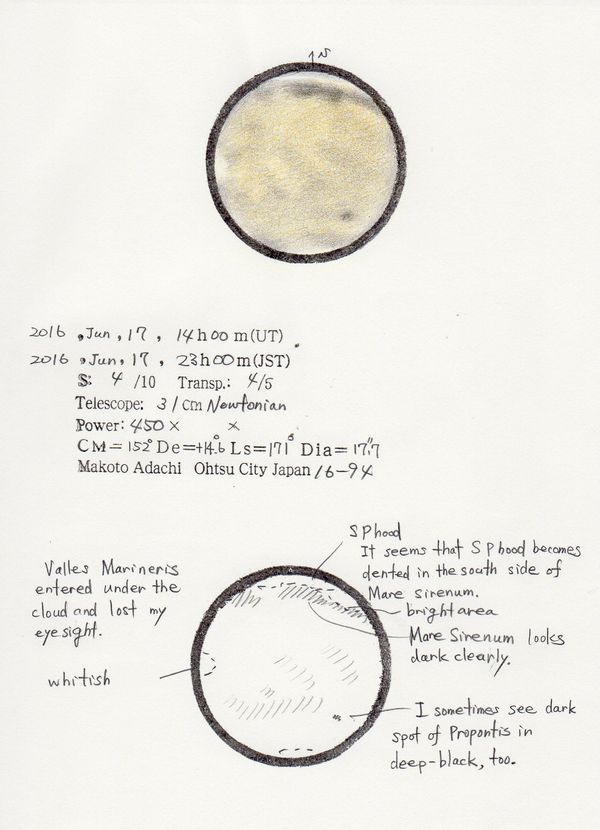 N
2016 , Jun , 17 , 14h00m(UT) .
2016 , Jun , 17 , 23h00m(JST)
S: 4 /10 Transp.: 4/5
Telescope: 31cm Newtonian
Power: 450× ×
CM=152° De=+14.6° Ls=171° Dia=17.7"
Makoto Adachi Ohtsu City Japan 16-94
SPhood
It seems that SPhood becomes
dented in the south side of
Mare sirenum.
bright area
Mare Sirenum looks
dark clearly.
Valles Marineris
entered under the
cloud and lost my
eyesight.
whitish
I sometimes see dark
spot of Propontis in
deep-black, too.